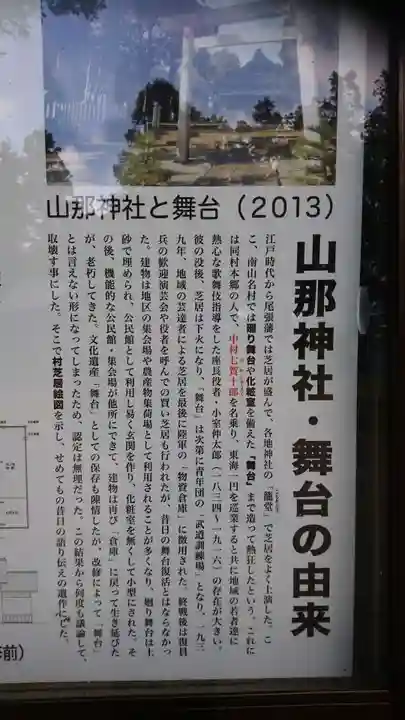 山那神社と舞台（2013）
山那神社・舞台の由来
江戸時代から尾張藩では芝居が盛んで、各地神社の「籠堂」で芝居をよく上演した。こ
こ、南山名村では廻り舞台や化粧室を備えた「舞台」まで造って熱狂したという。これに
は同村本郷の人で、中村七賀十郎を名乗り、東海一円を巡業すると共に地域の若者達に
熱心な歌舞伎指導をした座長役者・小室仲太郎（一八三四～一九一六）の存在が大きい。
彼の没後、芝居は下火になり、「舞台」は次第に青年団の「武道訓練場」となり、一九三
九年、地域の芸達者による芝居を最後に陸軍の「物資倉庫」に徴用された。終戦後は復員
兵の歓迎演芸会や役者を呼んでの買い芝居も行われたが、昔日の舞台復活とはならなかっ
た。建物は地区の集会場や農産物集荷場として利用されることが多くなり、廻り舞台は土
砂で埋められ、公民館として利用し易く玄関を作り、化粧室を無くして小型にされた。そ
の後、機能的な公民館・集会場が他所にできて、建物は再び「倉庫」に戻って生き延びた
が、老朽してきた。文化遺産「舞台」としての保存も陳情したが、改修によって「舞台」
とは言えない形になってしまったため、認定は無理だった。この結果から何度も議論して、
取壊す事にした。そこで村芝居絵図を示し、せめてもの昔日の語り伝えの遺作にした。
前）